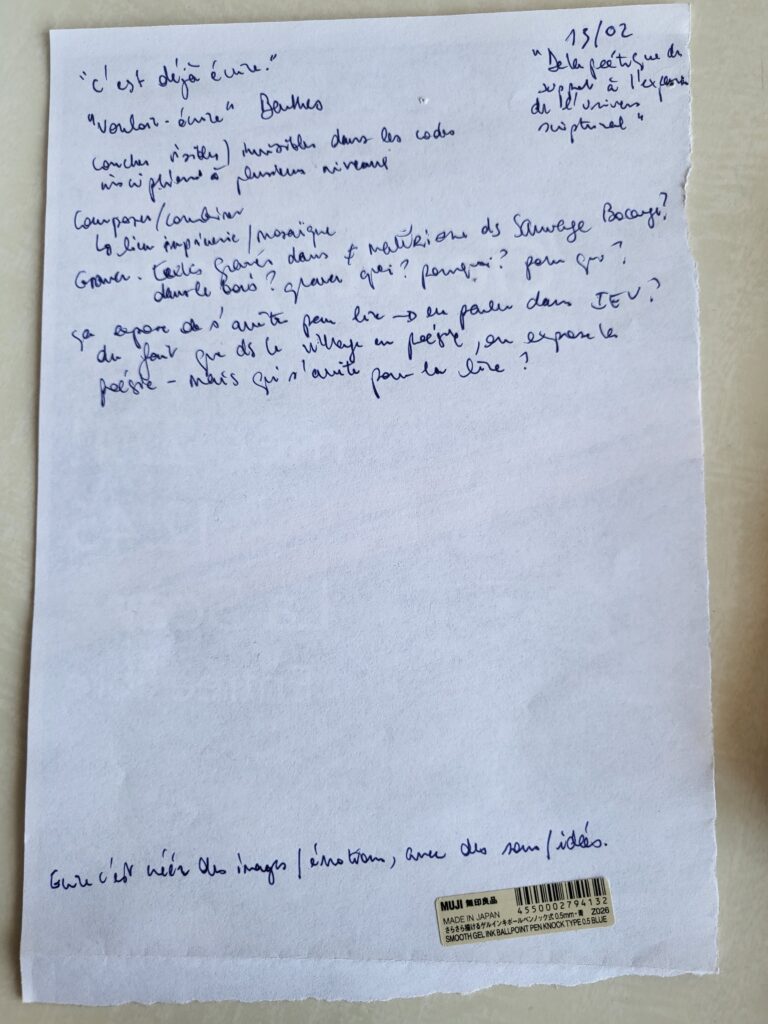 15/02
"De la poétique du
support à l'expansion
de l'univers
scriptural"
"C'est déjà écrire."
"Vouloir-écrire" Barthes
couches visibles/invisibles dans les codes
à plusieurs niveaux
Composer/combiner
↳ lien imprimerie/mosaïque
Graver. textes gravés dans ≠ matériaux ds Sauvage Bocage?
dans le bois? graver quoi? pourquoi? pour qui?
ça expose de s'arrête pour lire → en parler dans IEV?
du fait que ds le village en poésie, on expose les
poésie - mais qui s'arrête pour la lire?
Ecrire c'est créer des images/émotions, avec des sons/idées.
MUJI 無印良品
4550002794132
MADE IN JAPAN Z026
さらさら描けるゲルインキボールペンノック式 0.5mm・青
SMOOTH GEL INK BALLPOINT PEN KNOCK TYPE 0.5 BLUE